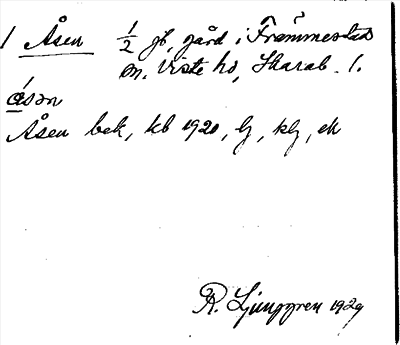 1 Åsen 1/2 gb, gård i Främmestad
sn, Viste hd, Skarab. l.
Åsen bek, kb 1920, lj, klj, ek
R. Ljunggren 1929